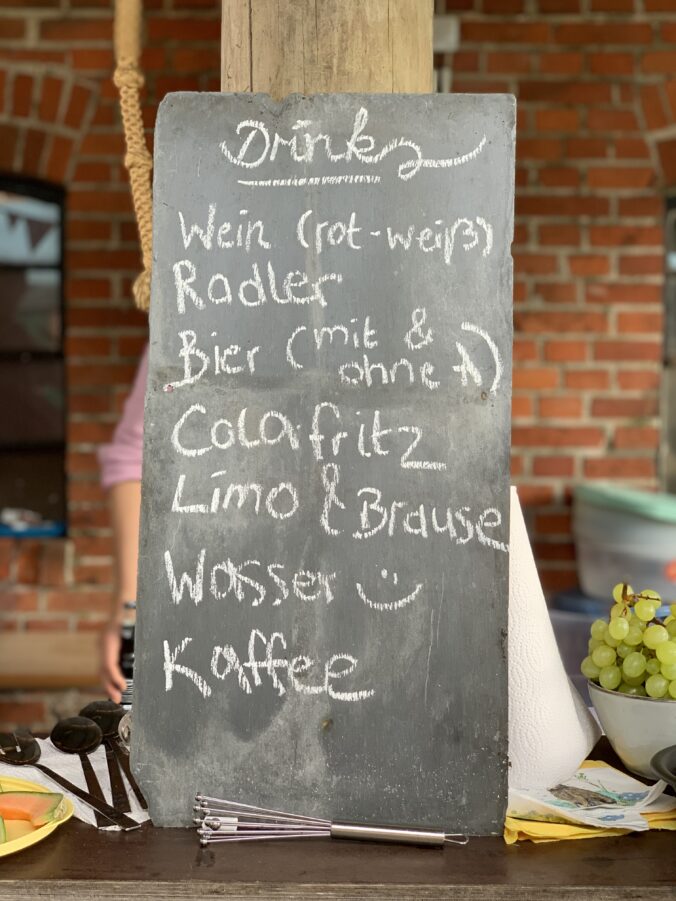 Drinks
Wein (rot-weiß)
Radler
Bier (mit &
ohne A)
Cola.fritz
Limo & Brause
Wasser
Kaffee